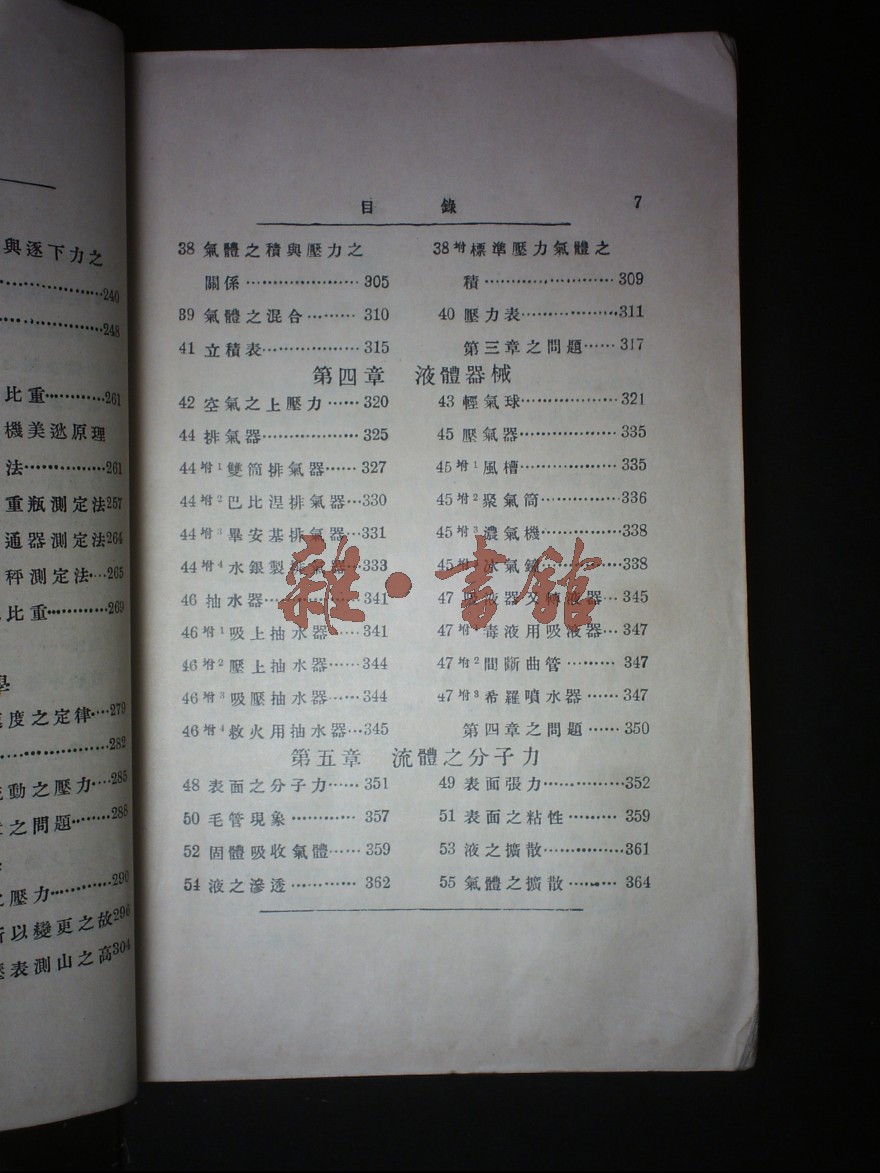 與逐下力之
240
248
比重 261
機美逖原理
法 261
重瓶測定法257
通器測定法264
秤測定法 265
比重 269
度之定律 279
282
動之壓力 285
之問題 288
壓力 290
以變更之故296
表測山之高304
目 錄 7
38 氣體之積與壓力之
關係 305
38增標準壓力氣體之
積 309
39 氣體之混合 310
40 壓力表 311
41 立積表 315
第三章之問題 317
第四章 液體器械
42 空氣之上壓力 320
43 輕氣球 321
44 排氣器 325
45 壓氣器 335
44增1雙筒排氣器 327
45增1風槽 335
44增2巴比涅排氣器 330
45增2聚氣筒 336
44增3畢安基排氣器 331
45增3濃氣機 338
44增4水銀製排氣器 333
冰氣 338
46 抽水器 341
47 吸液器 345
46增1吸上抽水器 341
47增1毒液用吸液器 347
46增2壓上抽水器 344
47增2間斷曲管 347
46增3吸壓抽水器 344
47增3希羅噴水器 347
46增4救火用抽水器 345
第四章之問題 350
第五章 流體之分子力
48 表面之分子力 351
49 表面張力 352
50 毛管現象 357
51 表面之粘性 359
52 固體吸收氣體 359
53 液之擴散 361
54 液之滲透 362
55 氣體之擴散 364
雜·書館